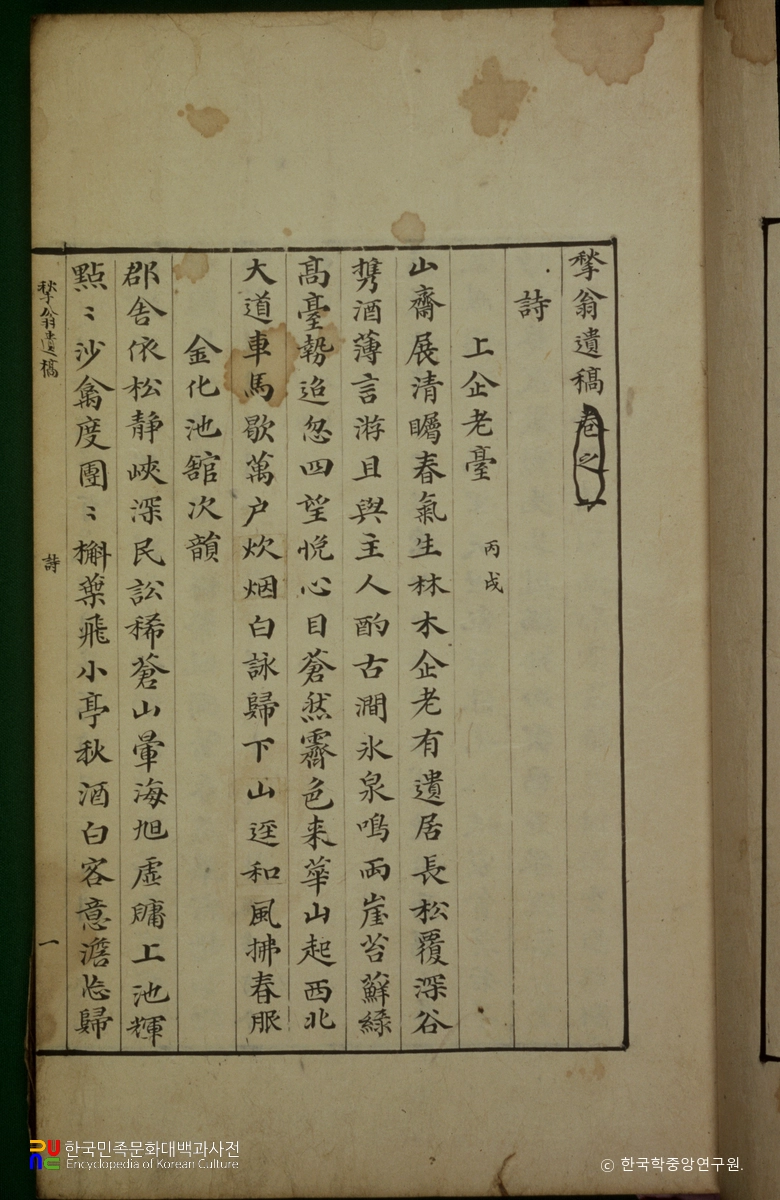 揫翁遺稿卷之一
詩
上企老臺 丙戌
山齋展清矚春氣生林木企老有遺居長松覆深谷
携酒薄言游且與主人酌古澗氷泉鳴兩崖苔蘚綠
高臺勢迢忽四望悅心目蒼然霽色来華山起西北
大道車馬歇萬户炊烟白詠歸下山逕和風拂春服
金化池舘次韻
郡舍依松静峽深民訟稀蒼山暈海旭虛牗上池輝
點〻沙禽度團〻槲葉飛小亭秋酒白客意澹忘歸
揫翁遺稿 詩 一
한국민족문화대백과사전
Encyclopedia of Korean Culture
ⓒ 한국학중앙연구원.